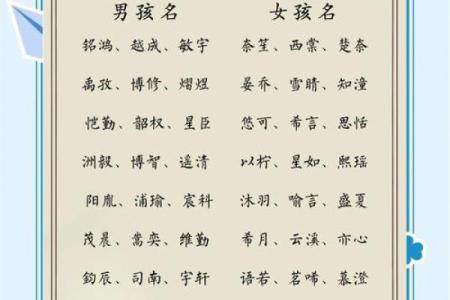 男孩名 女孩名
铭鸿、越成、敏宇 奈笙、西棠、楚奈
禹孜、博修、熠煜 晏乔、雪晴、知潼
恺勤、韶权、星臣 悠可、希言、思恬
洲毅、博智、遥清 以柠、星如、熙瑶
阳胤、浦瑜、宸科 沐羽、喻言、盛夏
茂晨、嵩奕、维勤 希月、云溪、亦心
钧辰、司南、宇轩 语若、茗唏、慕澄